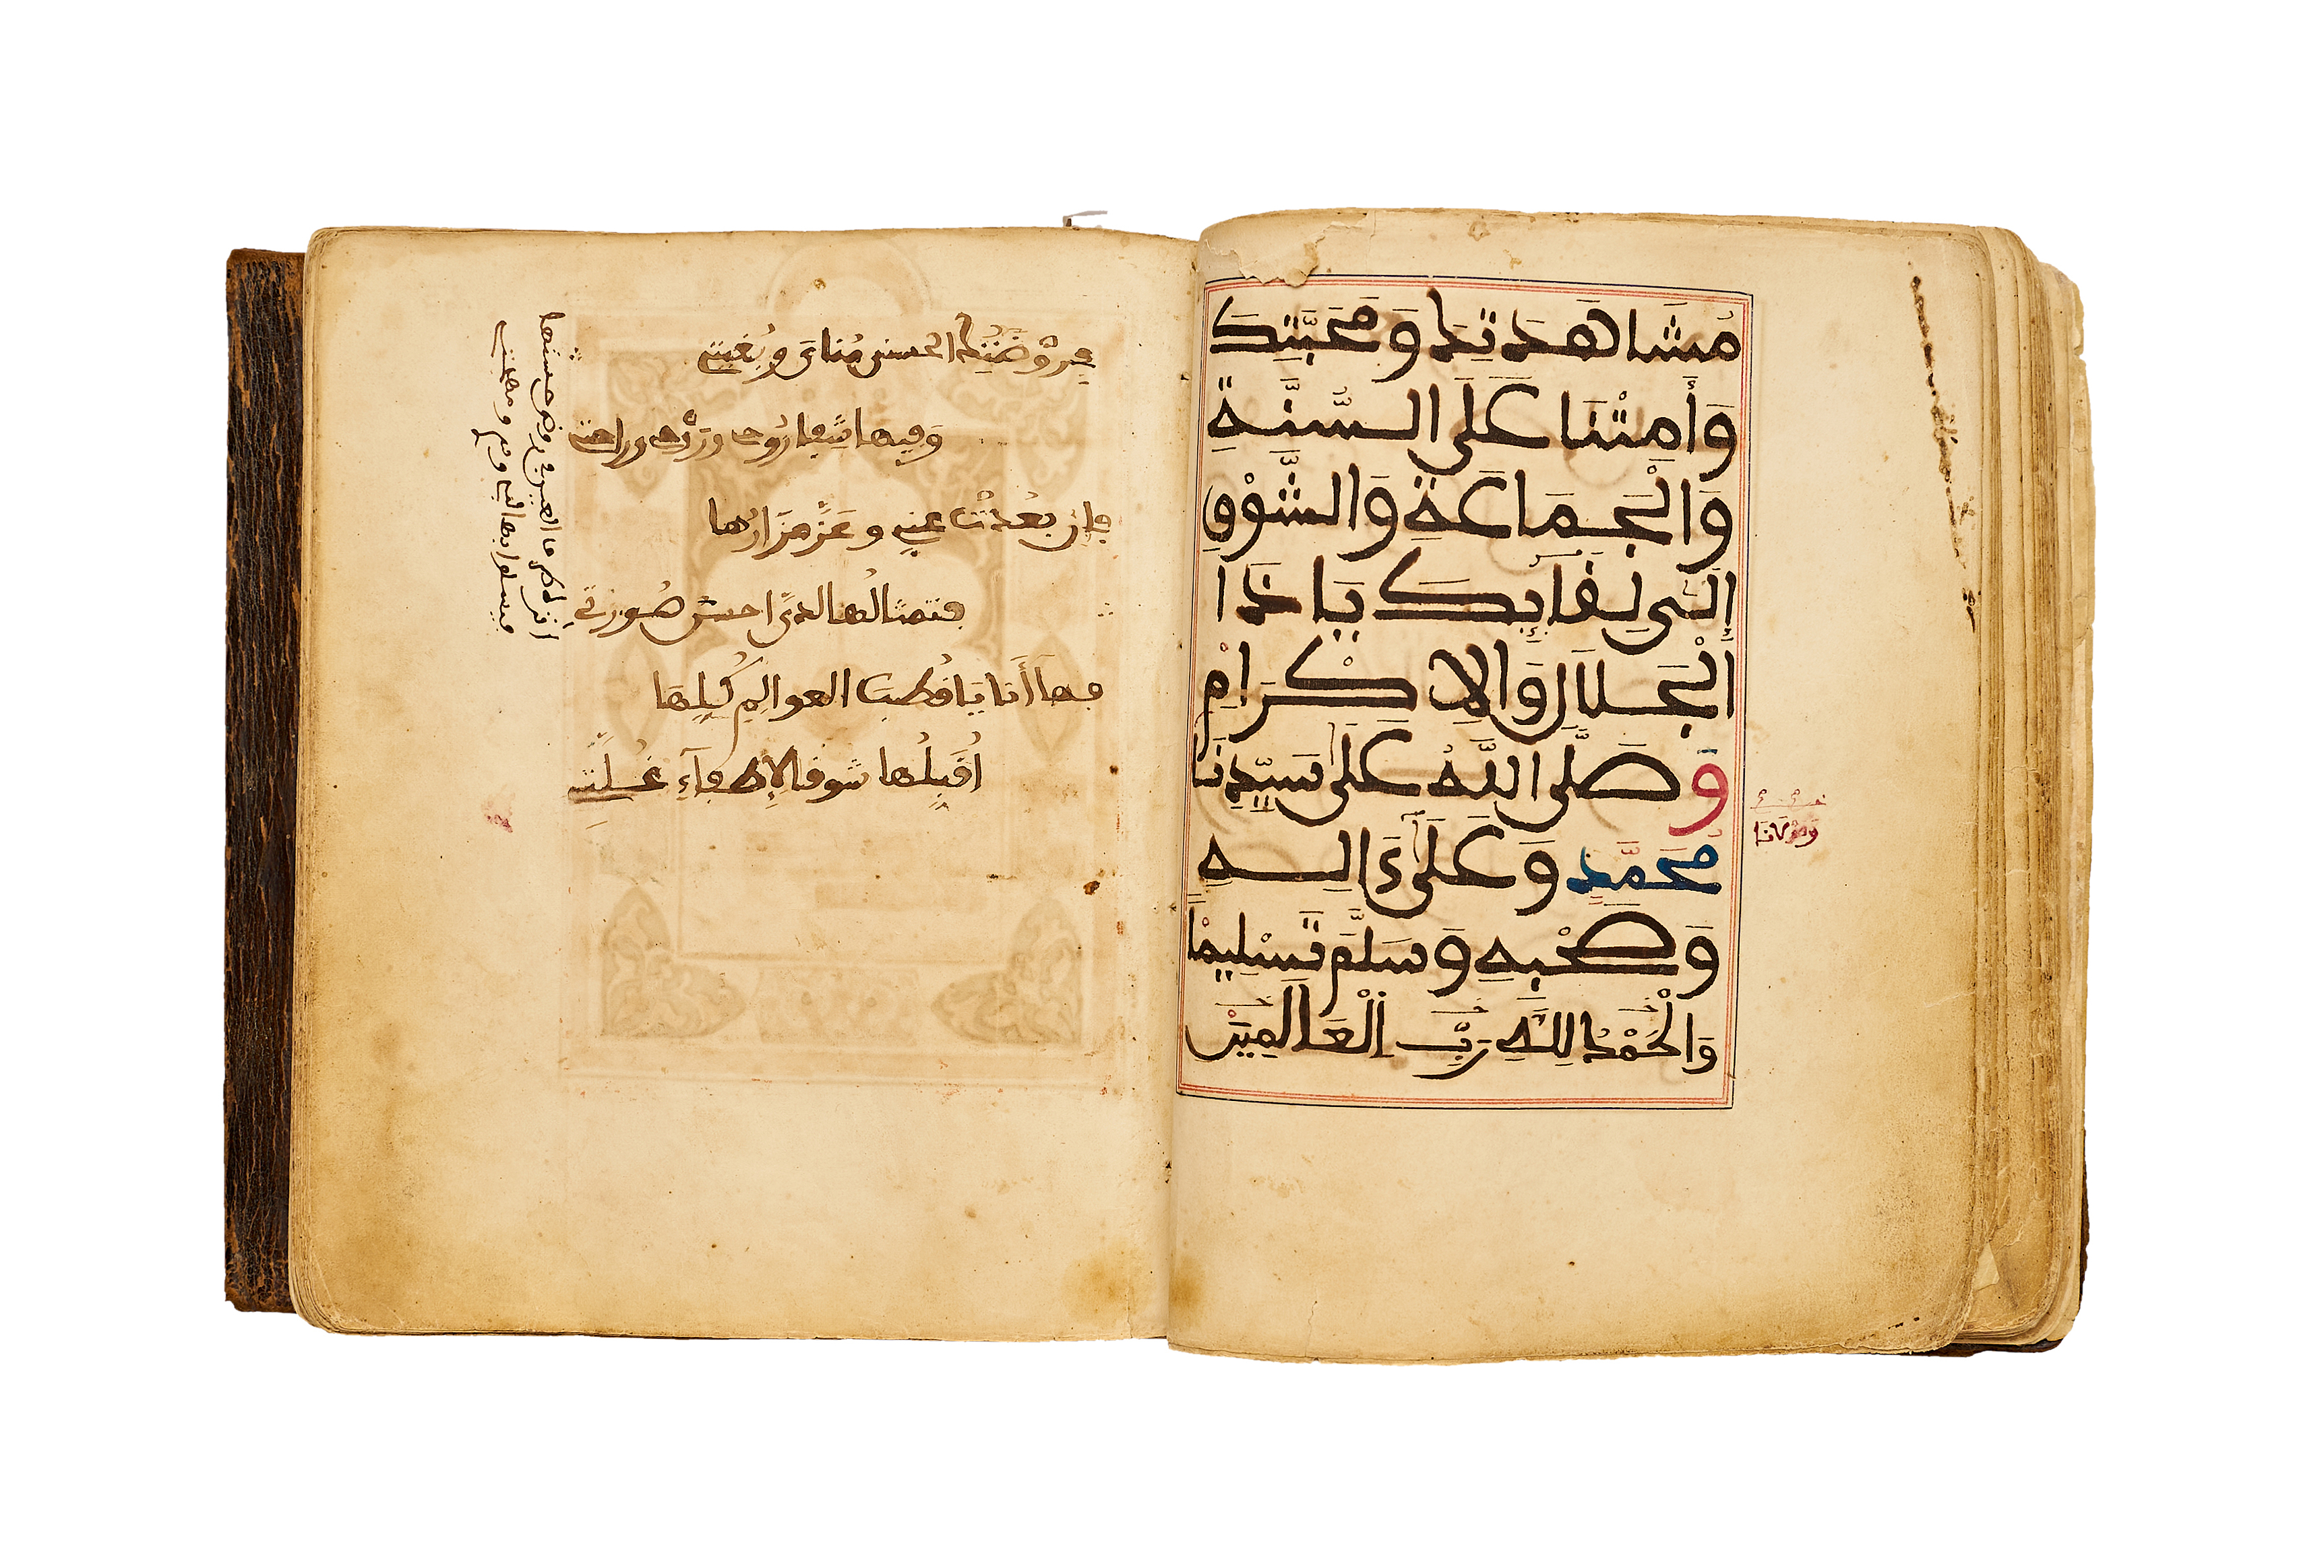 مُشَاهَدَتِكَ وَمَحَبَّتِكَ
وَأَمِتْنَا عَلَى السُّنَّةِ
وَالْجَمَاعَةِ وَالشَّوْقِ
إِلَى لِقَائِكَ يَا ذَا
الْجَلَالِ وَالْإِكْرَامِ
وَصَلَّى اللَّهُ عَلَى سَيِّدِنَا
وَمَوْلَانَا
مُحَمَّدٍ وَعَلَى ءَالِهِ
وَصَحْبِهِ وَسَلَّمَ تَسْلِيمًا
وَالْحَمْدُ لِلَّهِ رَبِّ الْعَالَمِينَ
فِي رَوْضَتِكَ الْحُسْنَى مُنَايَ وَبُغْيَتِي
وَفِيهَا شِفَا رُوحِي وَرَاحَتِي
فَإِنْ بَعُدَتْ عَنِّي وَعَزَّ مَزَارُهَا
فَتِمْثَالُهَا لَدَيَّ أَحْسَنُ صُورَةِ
فَهَا أَنَا يَا قُطْبَ الْعَوَالِمِ كُلِّهَا
أُقَبِّلُهَا شَوْقًا لِإِطْفَاءِ غُلَّتِي